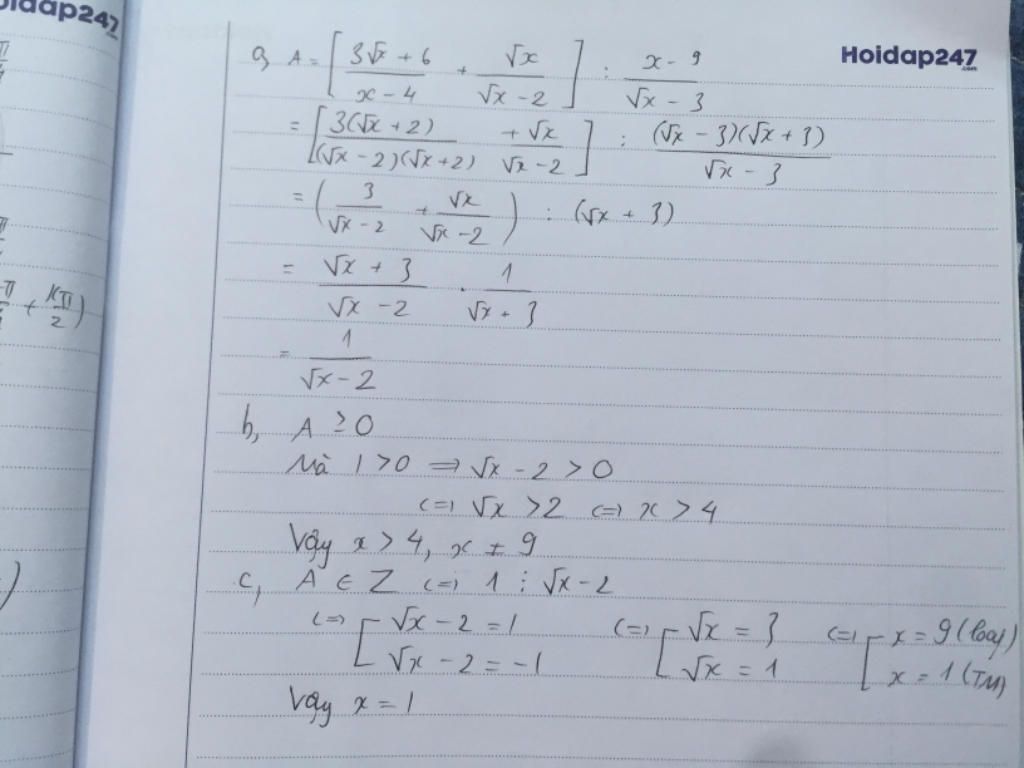 oidap247
Hoidap247
.com
a, A = [ (3√x + 6)/(x - 4) + √x/(√x - 2) ] : (x - 9)/(√x - 3)
= [ 3(√x + 2)/((√x - 2)(√x + 2)) + √x/(√x - 2) ] : ((√x - 3)(√x + 3))/(√x - 3)
= ( 3/(√x - 2) + √x/(√x - 2) ) : (√x + 3)
= (√x + 3)/(√x - 2) . 1/(√x + 3)
= 1/(√x - 2)
b, A ≥ 0
Mà 1 > 0 => √x - 2 > 0
<=> √x > 2 <=> x > 4
Vậy x > 4, x ≠ 9
c, A ∈ Z <=> 1 ⋮ √x - 2
<=> [ √x - 2 = 1 <=> [ √x = 3 <=> [ x = 9 (loại)
√x - 2 = -1 √x = 1 x = 1 (TM)
Vậy x = 1
+ kπ/2)